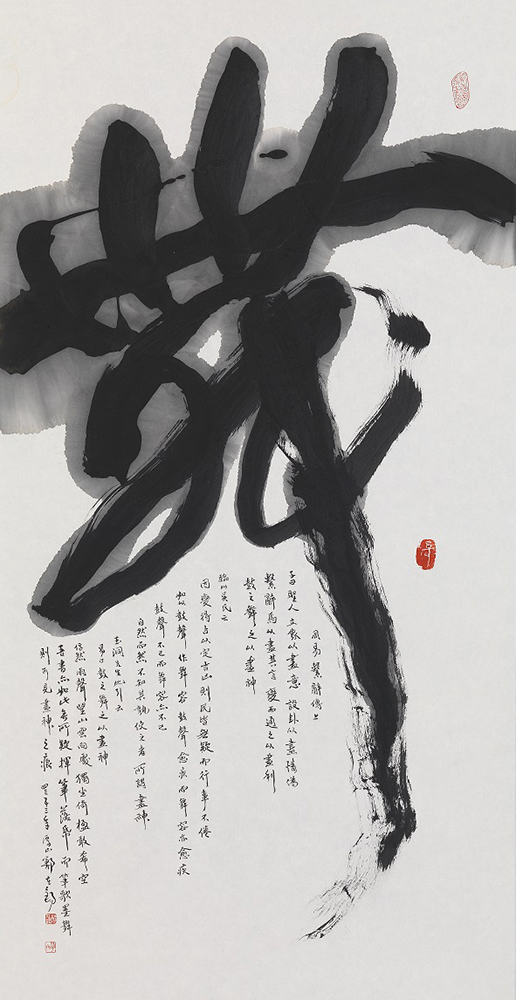 舞
周易繫辭傳上
子曰聖人立象以盡意設卦以盡情偽
繫辭焉以盡其言變而通之以盡利
鼓之舞之以盡神
臨川吳氏云
因變得占以定吉凶則民皆无疑而行事不倦
如以鼓聲作舞容鼓聲愈疾而舞容亦愈疾
鼓聲不已而舞容亦不已
自然而然不知其孰使之者所謂盡神
先生
易曰鼓之舞之以盡神
雨聲望山雲獨坐倚
吾書亦如此揮筆落帋而筆歌墨舞
則可見盡神之痕